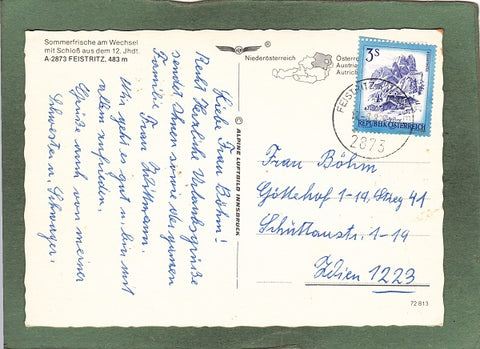 Sommerfrische am Wechsel
mit Schloß aus dem 12. Jhdt.
A-2873 FEISTRITZ, 483 m
Niederösterreich
Österre
Austria
Autrich
3S
REPUBLIK ÖSTERREICH
FEISTRITZ
2873
© ALPINE LUFTBILD INNSBRUCK
Liebe Frau Böhm!
Recht Herzliche Urlaubsgrüße
sendet Ihnen sowie der ganzen
Familie Frau
Mir geht es gut u. bin mit
allem zufrieden.
Grüße auch von meiner
Schwester u. Schwager.
Frau Böhm
Göttehof 1-19, Stieg 41
Schüttaustr. 1-19
Wien 1223
72 813